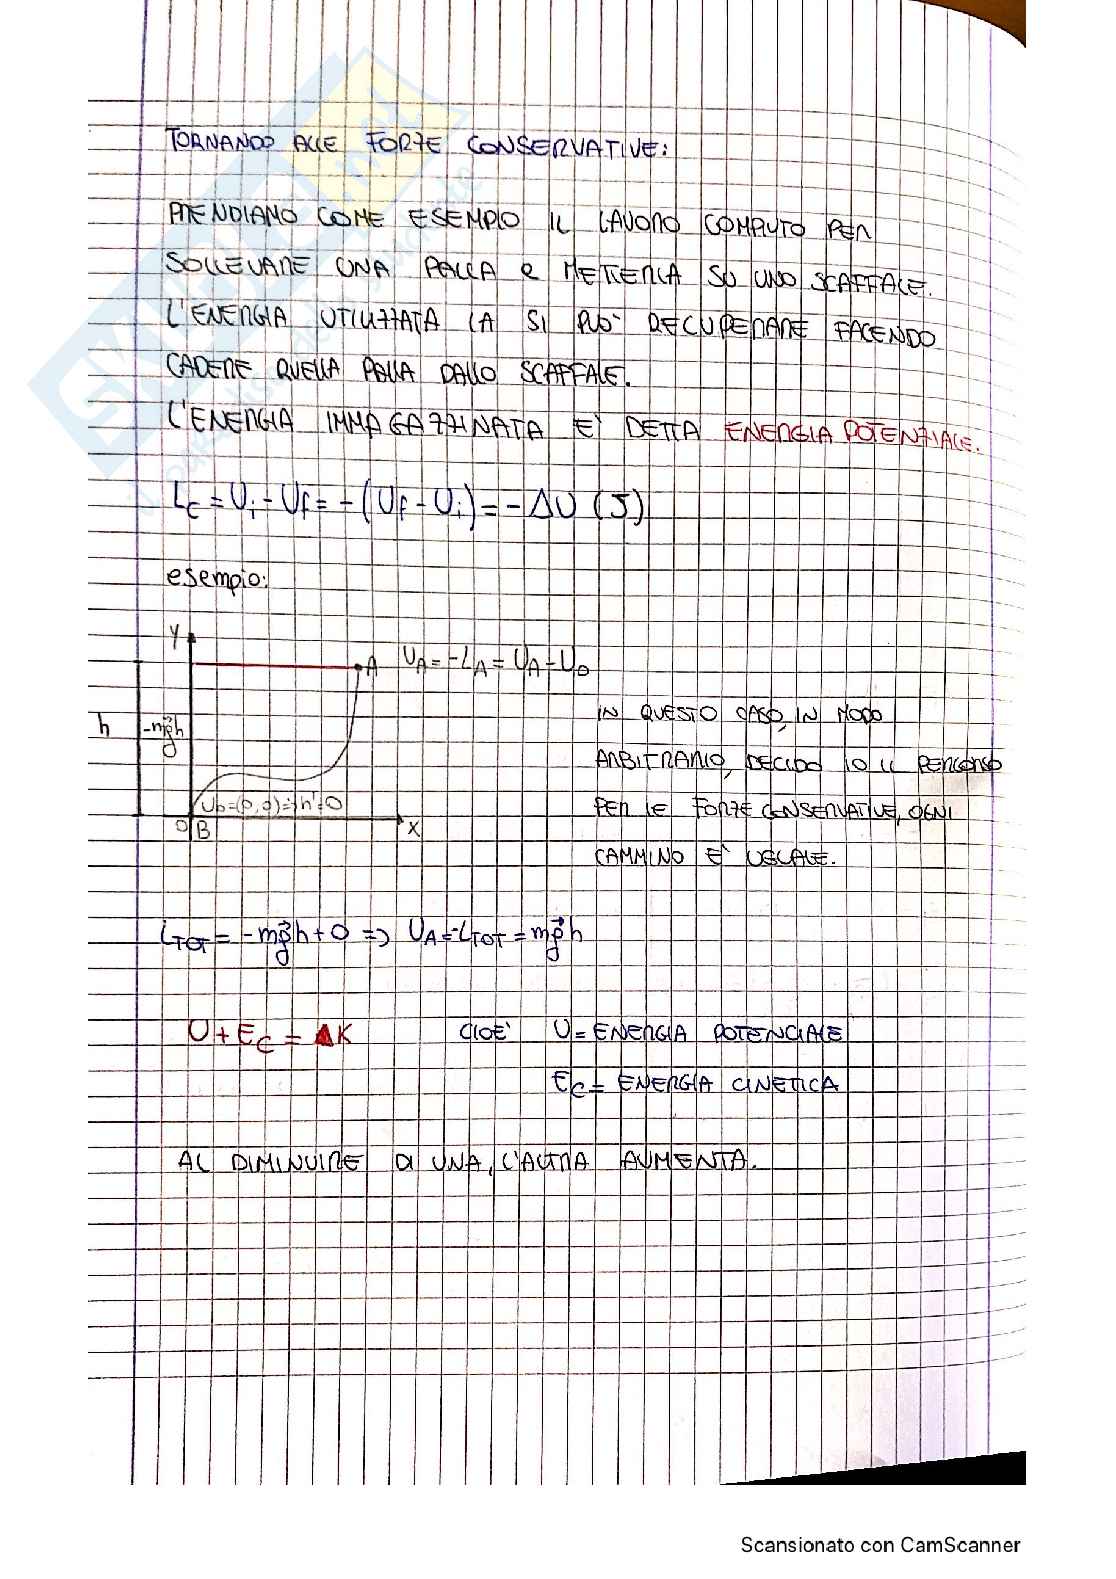 TORNANDO ALLE FORZE CONSERVATIVE:
PRENDIAMO COME ESEMPIO IL LAVORO COMPIUTO PER
SOLLEVARE UNA PALLA e METTERLA SU UNO SCAFFALE.
L'ENERGIA UTILIZZATA LA SI PUÒ RECUPERARE FACENDO
CADERE QUELLA PALLA DALLO SCAFFALE.
L'ENERGIA IMMAGAZZINATA E' DETTA ENERGIA POTENZIALE.
Lc = Ui - Uf = -(Uf - Ui) = -ΔU (J)
esempio:
Y
A UA = -LA = UA - U0
IN QUESTO CASO, IN MODO
h -mg⃗h
ARBITRARIO, DECIDO IO IL PERCORSO
PER LE FORZE CONSERVATIVE, OGNI
Ub=(0,0)=>h'=0
O B X
CAMMINO E' UGUALE.
LTOT = -mg⃗h + 0 => UA = -LTOT = mg⃗h
U + Ec = ΔK CIOE' U = ENERGIA POTENCIALE
Ec = ENERGIA CINETICA
AL DIMINUIRE DI UNA, L'ALTRA AUMENTA.
Scansionato con CamScanner